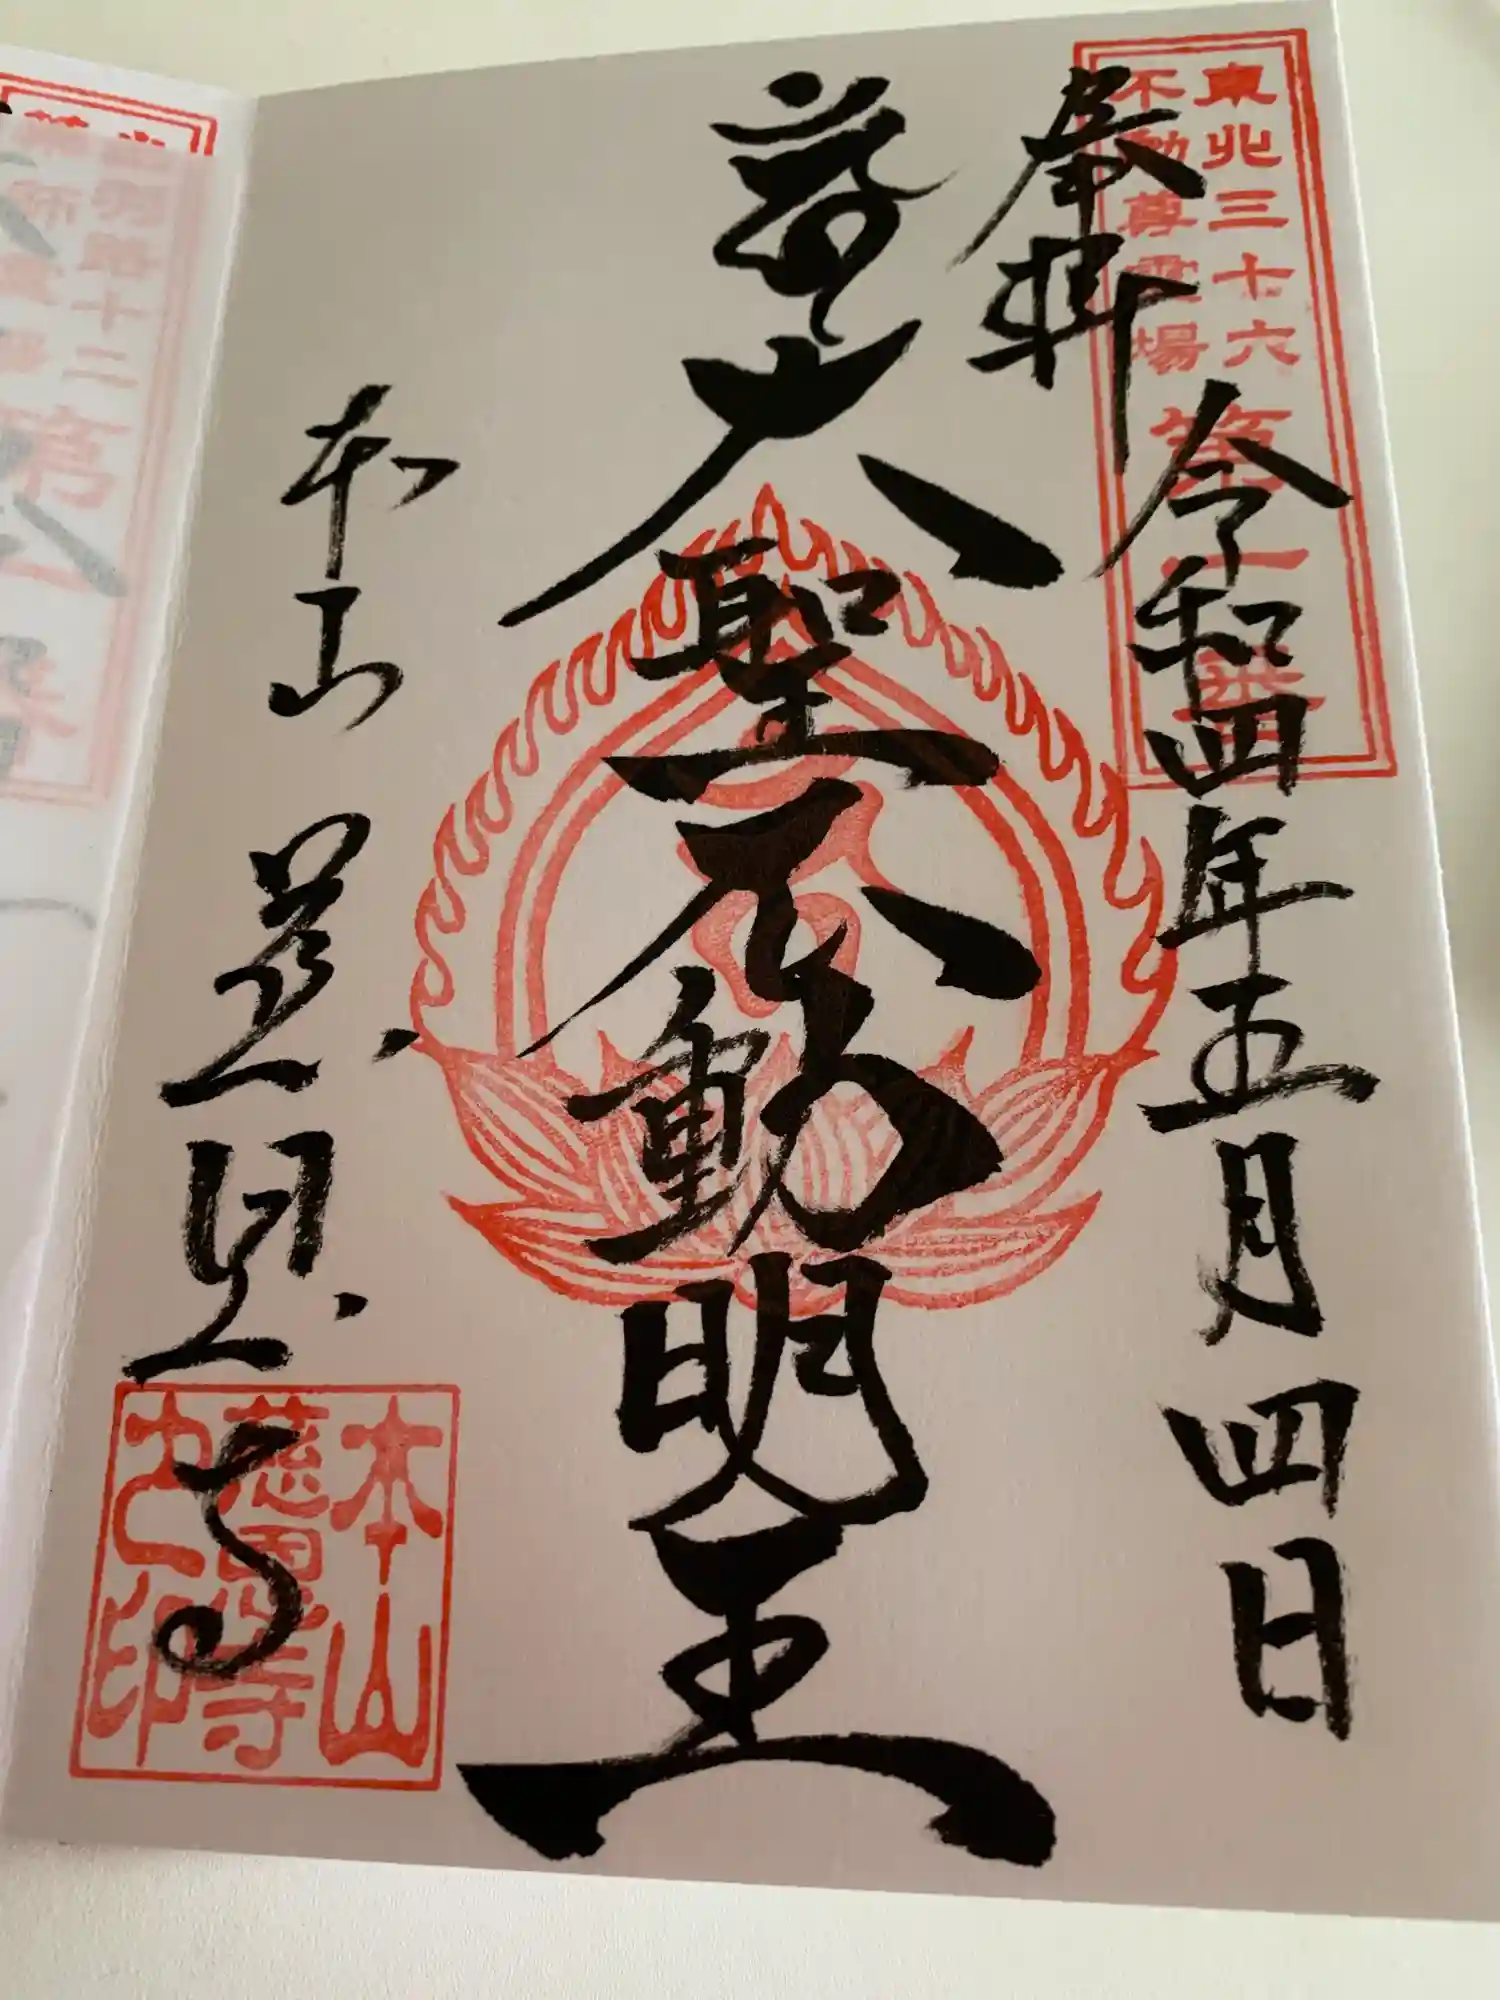 東北三十六
不動尊霊場
第一番
奉拝
令和四年五月四日
大聖不動明王
本山
慈恩寺
本山
慈恩寺
之印
十二
第